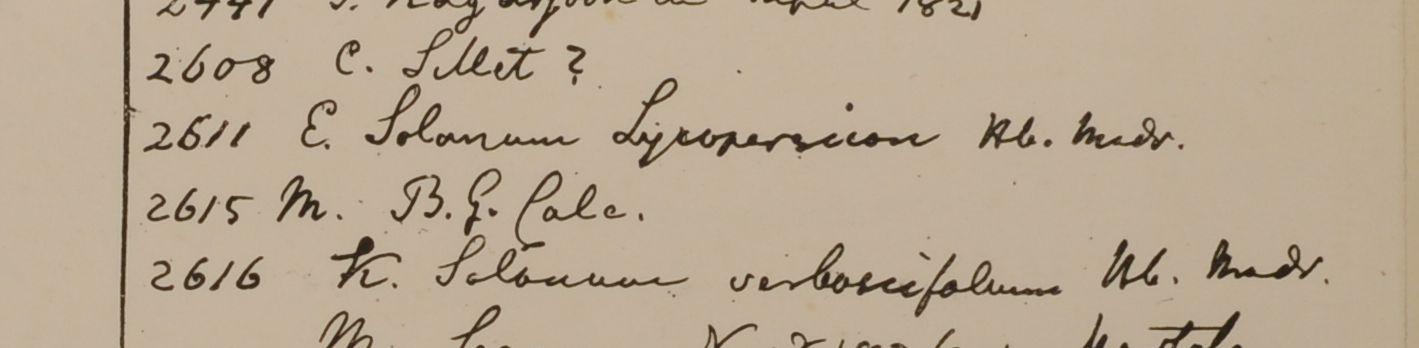 2441 April 1821
2608 C. Sillet ?
2611 E. Solanum Lycopersicon Hb. Madr.
2615 M. B.G. Calc.
2616 K. Solanum verbascifolium Hb. Madr.
M.